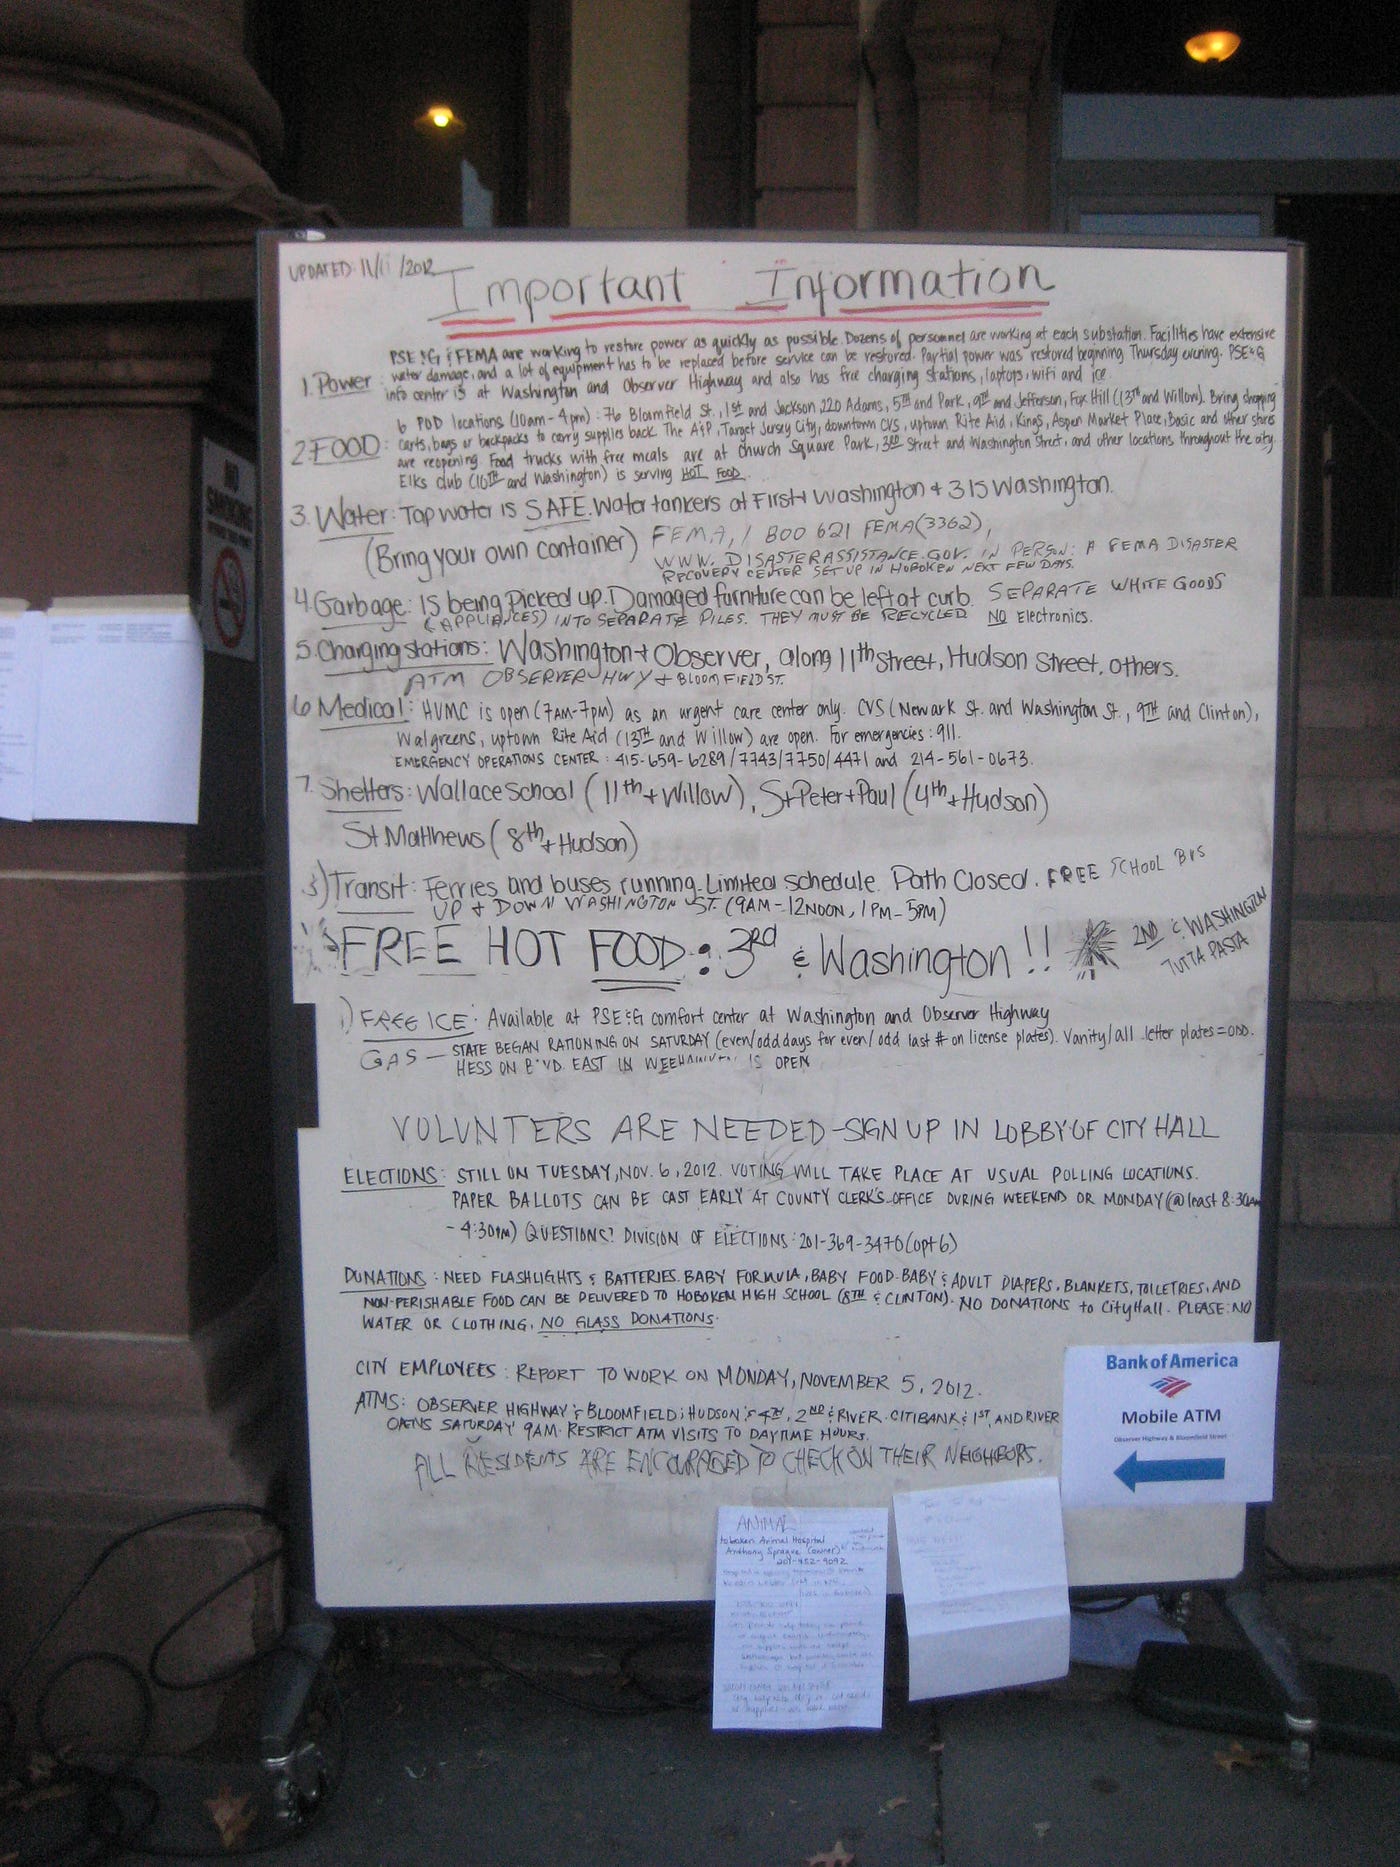 UPDATED: 11/1 /2012
Important Information
PSE&G & FEMA are working to restore power as quickly as possible. Dozens of personnel are working at each substation. Facilities have extensive
1. Power: water damage, and a lot of equipment has to be replaced before service can be restored. Partial power was restored beginning Thursday evening. PSE&G
info center is at Washington and Observer Highway and also has free charging stations, laptops, wifi and ice.
6 POD locations (10am-4pm): 76 Bloomfield St., 1st and Jackson, 220 Adams, 5th and Park, 9th and Jefferson, Fox Hill (13th and Willow). Bring shopping
2. FOOD: carts, bags or backpacks to carry supplies back. The A&P, Target Jersey City, downtown CVS, uptown Rite Aid, Kings, Aspen Market Place, Basic and other stores
are reopening. Food trucks with free meals are at Church Square Park, 3RD Street and Washington Street, and other locations throughout the city.
Elks club (10TH and Washington) is serving HOT FOOD.
3. Water: Tap water is SAFE. Water tankers at First + Washington + 315 Washington.
(Bring your own container) FEMA, 1 800 621 FEMA (3362),
WWW. DISASTERASSISTANCE.GOV. IN PERSON: A FEMA DISASTER
RECOVERY CENTER SET UP IN HOBOKEN NEXT FEW DAYS.
4. Garbage: Is being Picked up. Damaged furniture can be left at curb. SEPARATE WHITE GOODS
(APPLIANCES) INTO SEPARATE PILES. THEY MUST BE RECYCLED NO Electronics.
5. Charging stations: Washington + Observer, along 11th street, Hudson Street, others.
ATM OBSERVER HWY + BLOOMFIELD ST.
6 Medical: HUMC is open (7AM-7PM) as an urgent care center only. CVS (Newark St. and Washington St., 9TH and Clinton),
Walgreens, uptown Rite Aid (13TH and Willow) are open. For emergencies: 911.
EMERGENCY OPERATIONS CENTER: 415-659-6289/7743/7750/4471 and 214-561-0673.
7. Shelters: Wallace School (11th + Willow), St Peter + Paul (4th + Hudson)
St. Matthews (8th + Hudson)
Transit: Ferries and buses running. Limited schedule. Path Closed. FREE SCHOOL BUS
UP + DOWN WASHINGTON ST. (9AM-12NOON, 1PM-5PM)
FREE HOT FOOD: 3rd & Washington!! 2ND & WASHINGTON
TUTTA PASTA
FREE ICE: Available at PSE&G comfort center at Washington and Observer Highway
GAS - STATE BEGAN RATIONING ON SATURDAY (even/odd days for even/odd last # on license plates). Vanity/all letter plates = ODD.
HESS ON EAST IN IS OPEN
VOLUNTERS ARE NEEDED - SIGN UP IN LOBBY OF CITY HALL
ELECTIONS: STILL ON TUESDAY, NOV. 6, 2012. VOTING WILL TAKE PLACE AT USUAL POLLING LOCATIONS.
PAPER BALLOTS CAN BE CAST EARLY AT COUNTY CLERK'S OFFICE DURING WEEKEND OR MONDAY (@ least 8:30am
- 4:30pm) QUESTIONS? DIVISION OF ELECTIONS: 201-369-3470 (opt 6)
DONATIONS: NEED FLASHLIGHTS & BATTERIES. BABY FORMULA, BABY FOOD. BABY & ADULT DIAPERS, BLANKETS, TOILETRIES, AND
NON-PERISHABLE FOOD CAN BE DELIVERED TO HOBOKEN HIGH SCHOOL (8TH & CLINTON). NO DONATIONS to City Hall. PLEASE: NO
WATER OR CLOTHING. NO GLASS DONATIONS.
CITY EMPLOYEES: REPORT TO WORK ON MONDAY, NOVEMBER 5, 2012.
ATMS: OBSERVER HIGHWAY & BLOOMFIELD; HUDSON & 4TH, 2ND & RIVER. CITIBANK & 1ST, AND RIVER
OPENS SATURDAY 9AM. RESTRICT ATM VISITS TO DAYTIME HOURS.
ALL RESIDENTS ARE ENCOURAGED TO CHECK ON THEIR NEIGHBORS.
Bank of America
Mobile ATM
Observer Highway & Bloomfield Street
ANIMAL
Hoboken Animal Hospital
Anthony Sprague (owner)
201-452-9092
NO
SMOKING